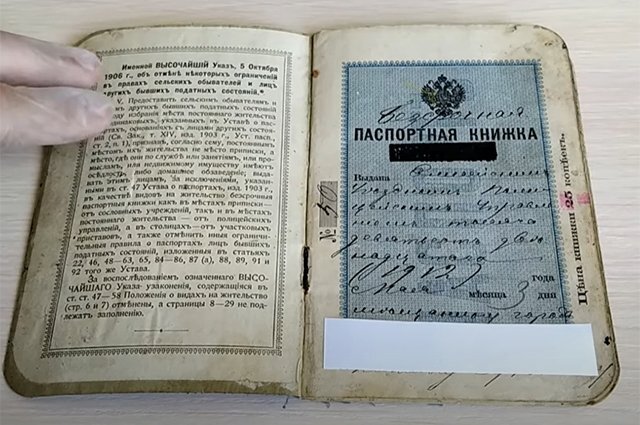 Именной ВЫСОЧАЙШІЙ Указъ, 5 Октября
1906 г., объ отмѣнѣ нѣкоторыхъ ограниченій
въ правахъ сельскихъ обывателей и лицъ
другихъ бывшихъ податныхъ состояній.
V. Предоставить сельскимъ обывателямъ и
другихъ бывшихъ податныхъ состояній
избранія мѣста постояннаго жительства
одинаковыхъ, указанныхъ въ Уставѣ о пас-
портахъ, основаніяхъ съ лицами другихъ состоя-
ній (Св. Зак., т. XIV, изд. 1903 г., Уст. пасп.,
ст. 2, п. 1), признавъ, согласно сему, постояннымъ
мѣстомъ ихъ жительства не мѣсто приписки, а
мѣсто, гдѣ они по службѣ или занятіямъ, про-
мысламъ, или недвижимому имуществу имѣютъ
осѣдлость, либо домашнее обзаведеніе; выда-
вать этимъ лицамъ, за исключеніями, указан-
ными въ ст. 47 Устава о паспортахъ, изд. 1903 г.,
въ качествѣ видовъ на жительство, безсрочныя
паспортныя книжки какъ въ мѣстахъ приписки—
отъ сословныхъ учрежденій, такъ и въ мѣстахъ
постояннаго жительства — отъ полицейскихъ
управленій, а въ столицахъ — отъ участковыхъ
приставовъ, а также отмѣнить иныя ограничи-
тельныя правила о паспортахъ лицъ бывшихъ
податныхъ состояній, изложенныя въ статьяхъ
22, 46, 48—63, 65, 84—86, 87 (а), 88, 89, 91 и
92 того же Устава.
За воспослѣдованіемъ означеннаго ВЫСО-
ЧАЙШАГО Указа узаконенія, содержащіяся въ
ст. ст. 47—58 Положенія о видахъ на жительство
(стр. 6 и 7) отмѣнены, а страницы 8—29 не под-
лежатъ заполненію.
Безсрочная
ПАСПОРТНАЯ КНИЖКА
Выдана
№ 50
Управле
тысяча
девятьсотъ две
надцатаго
(1912) года
Мая мѣсяца 3 дня
города
Цѣна книжки 25 копѣекъ.